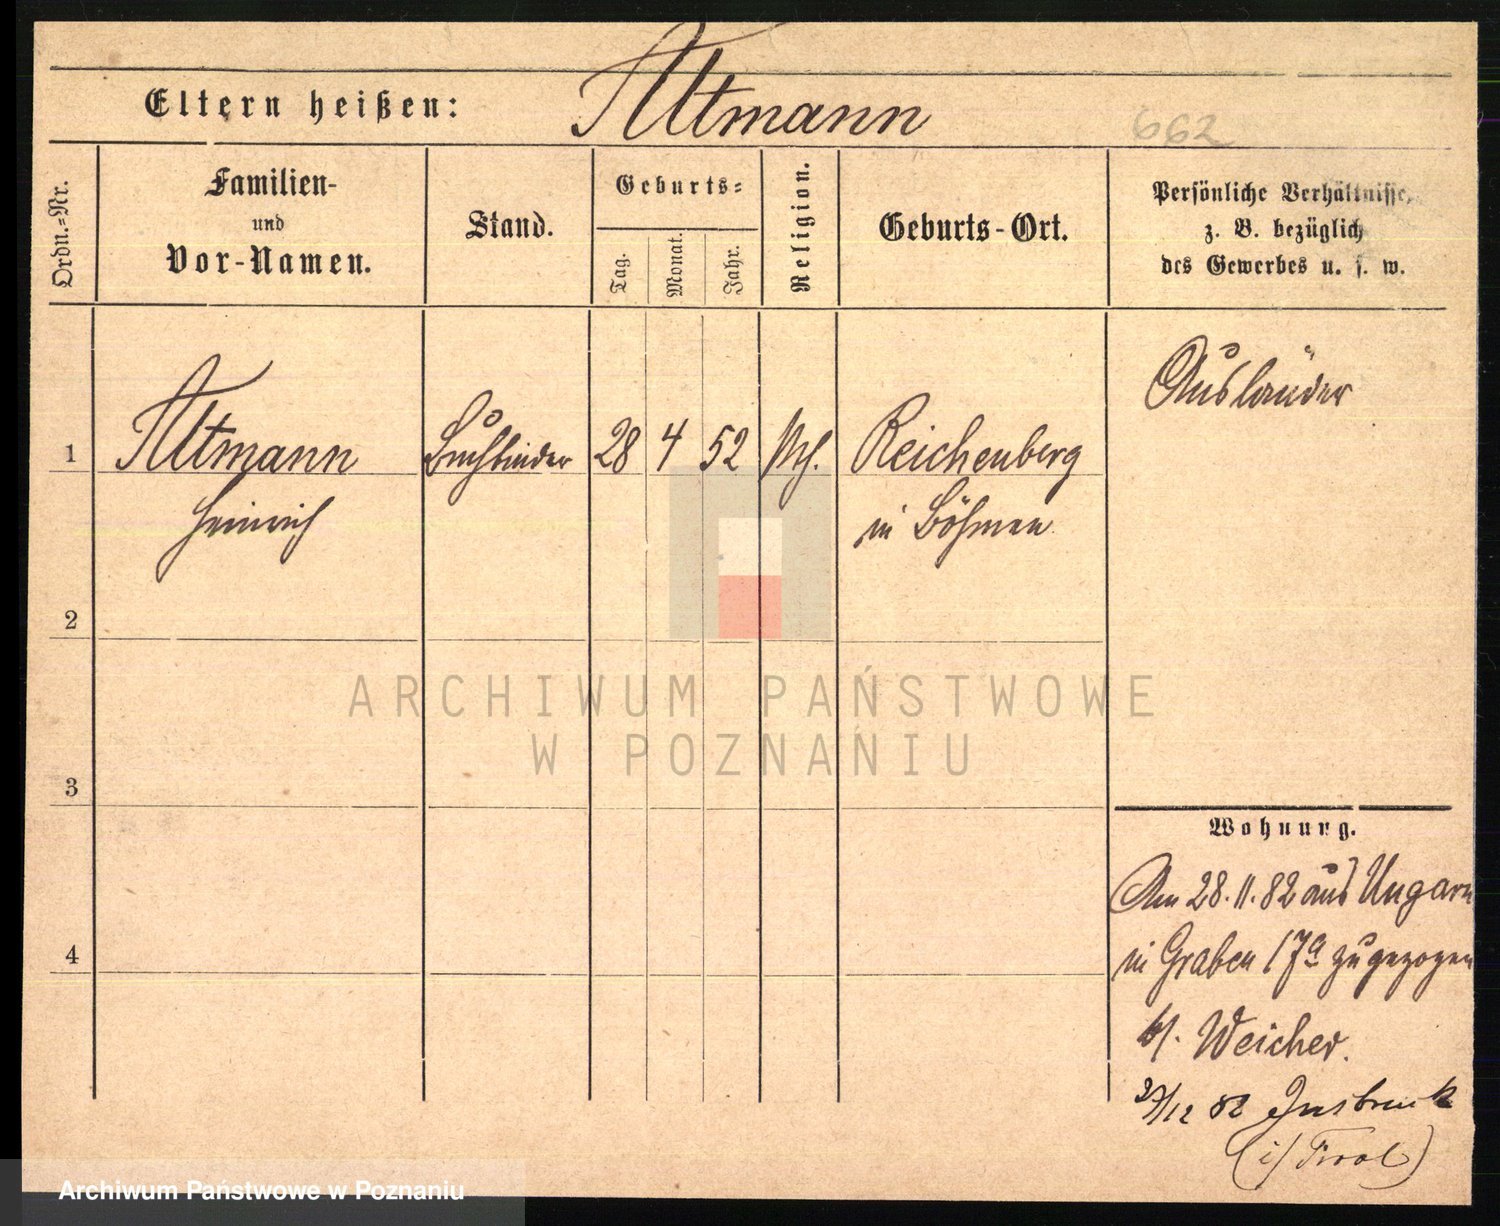 Eltern heißen: Altmann
662
Ordn.-Nr.
Familien-
und
Vor-Namen.
Stand.
Geburts-
Tag.
Monat.
Jahr.
Religion.
Geburts-Ort.
Persönliche Verhältnisse,
z. B. bezüglich
des Gewerbes u. s. w.
Ausländer
1 Altmann Buchbinder 28 4 52 Reichenberg
Heinrich in Böhmen
2
3
4
ARCHIWUM PAŃSTWOWE
W POZNANIU
Wohnung.
Am 28.11.82 aus Ungarn
in Graben 17a zugezogen
b/. Weicher.
/12 82 Insbruck
(i/Tirol)
Archiwum Państwowe w Poznaniu